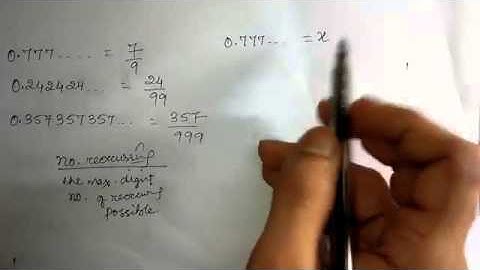 0.777.... = 7/9
0.242424... = 24/99
0.357357357... = 357/999
no. reoccussing
the max. digit
no. of reoccurs
possible
0.777... = x